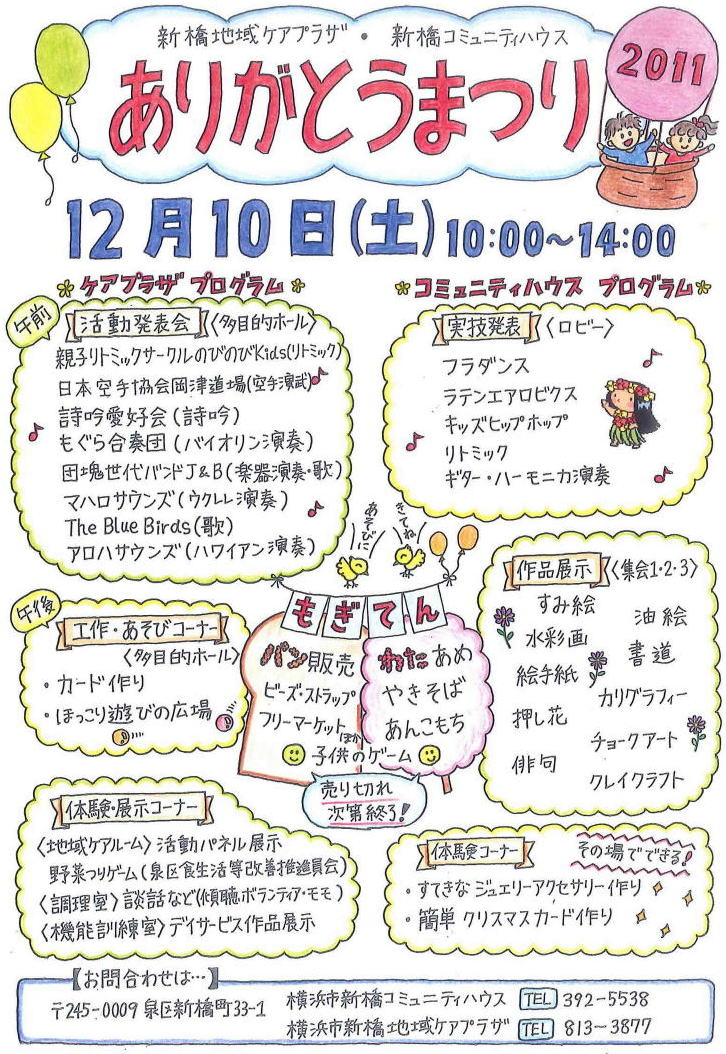 新橋地域ケアプラザ・新橋コミュニティハウス
ありがとうまつり
2011
12月10日(土)10:00～14:00
ケアプラザ プログラム
午前
活動発表会〈多目的ホール〉
親子リトミックサークルのびのびKids(リトミック)
日本空手協会岡津道場(空手演武)
詩吟愛好会(詩吟)
もぐら合奏団(バイオリン演奏)
団塊世代バンドJ&B(楽器演奏・歌)
マハロサウンズ(ウクレレ演奏)
The Blue Birds(歌)
アロハサウンズ(ハワイアン演奏)
コミュニティハウス プログラム
実技発表〈ロビー〉
フラダンス
ラテンエアロビクス
キッズヒップホップ
リトミック
ギター・ハーモニカ演奏
あそびに
きてね
午後
工作・あそびコーナー
〈多目的ホール〉
・カード作り
・ほっこり遊びの広場
もぎてん
パン販売
ビーズ・ストラップ
フリーマーケット
ほか
わたあめ
やきそば
あんこもち
子供のゲーム
売り切れ
次第終了!
作品展示〈集会1・2・3〉
すみ絵
油絵
水彩画
書道
絵手紙
カリグラフィー
押し花
チョークアート
俳句
クレイクラフト
体験・展示コーナー
〈地域ケアルーム〉活動パネル展示
野菜つりゲーム(泉区食生活等改善推進員会)
〈調理室〉談話など(傾聴ボランティア・モモ)
〈機能訓練室〉デイサービス作品展示
体験コーナー
その場でできる!
・すてきなジュエリーアクセサリー作り
・簡単クリスマスカード作り
【お問合わせは…】
〒245-0009 泉区新橋町33-1
横浜市新橋コミュニティハウス TEL 392-5538
横浜市新橋地域ケアプラザ TEL 813-3877